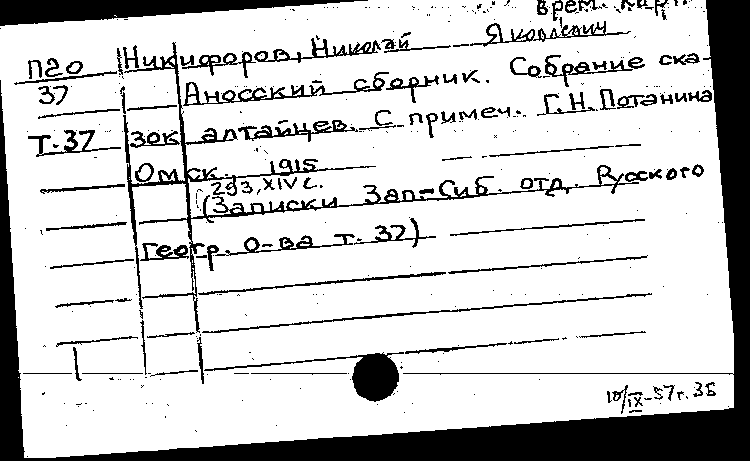 Врем. карт.
П20 Никифоров, Николай Яковлевич
37 Аносский сборник. Собрание ска-
Т.37 зок алтайцев. С примеч. Г.Н. Потанина
Омск, 1915
293, XIV с.
(Записки Зап-Сиб. отд. Русского
Геогр. О-ва т. 37)
10/IX-57г. ЗБ